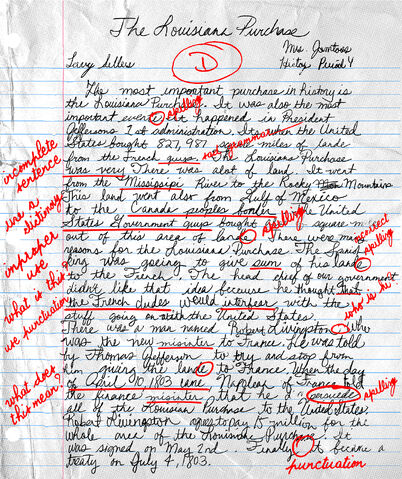 The Louisiana Purchase
Mrs. Jomtoss
Lacey Sellers
D
History Period 4
The most important purchase in history is
the Louisiana Purchase. It was also the most
important evente. It happened in President
spelling
Jeffersons 1st administration. Its when the United
States bought 827,987 square miles of lande
from the French guys. The Louisiana Purchase
use grammar
was very There was alot of land. It went
incomplete
sentence
from the Mississippi River to the Rocky Mountains
This land went also from Gulf of Mexico
use a
dictionary
to the Canada peoples border. The United
States Government guys bought square mi
spelling
out of this area of lande. There were many
incorrect
spelling
improper
use
resons for the Louisiana Purchase. The Spane
King was going to give sum of his lande
to the French. The head chief of our government
didn't like that idea because he thought that
who is he
what is this
use punctuation
the French dudes would interfear with the
stuff going on with the United States.
There was a man named Robert Livingston. Who
was the new misinter to France. He was told
by Thomas Jefferson to try and stop from
him giving the lande to France. When the day
what does
this mean?
of April 10, 1803 came, Naplean of France told
the finance misinter that he is persuede
spelling
all of the Louisian Purchase to the United states.
Robert Livingston agres to pay 15 million for the
whole area of the Louisinia Purchase. It
was signed on May 2nd. Finally It became a
punctuation
treaty on July 4, 1803.